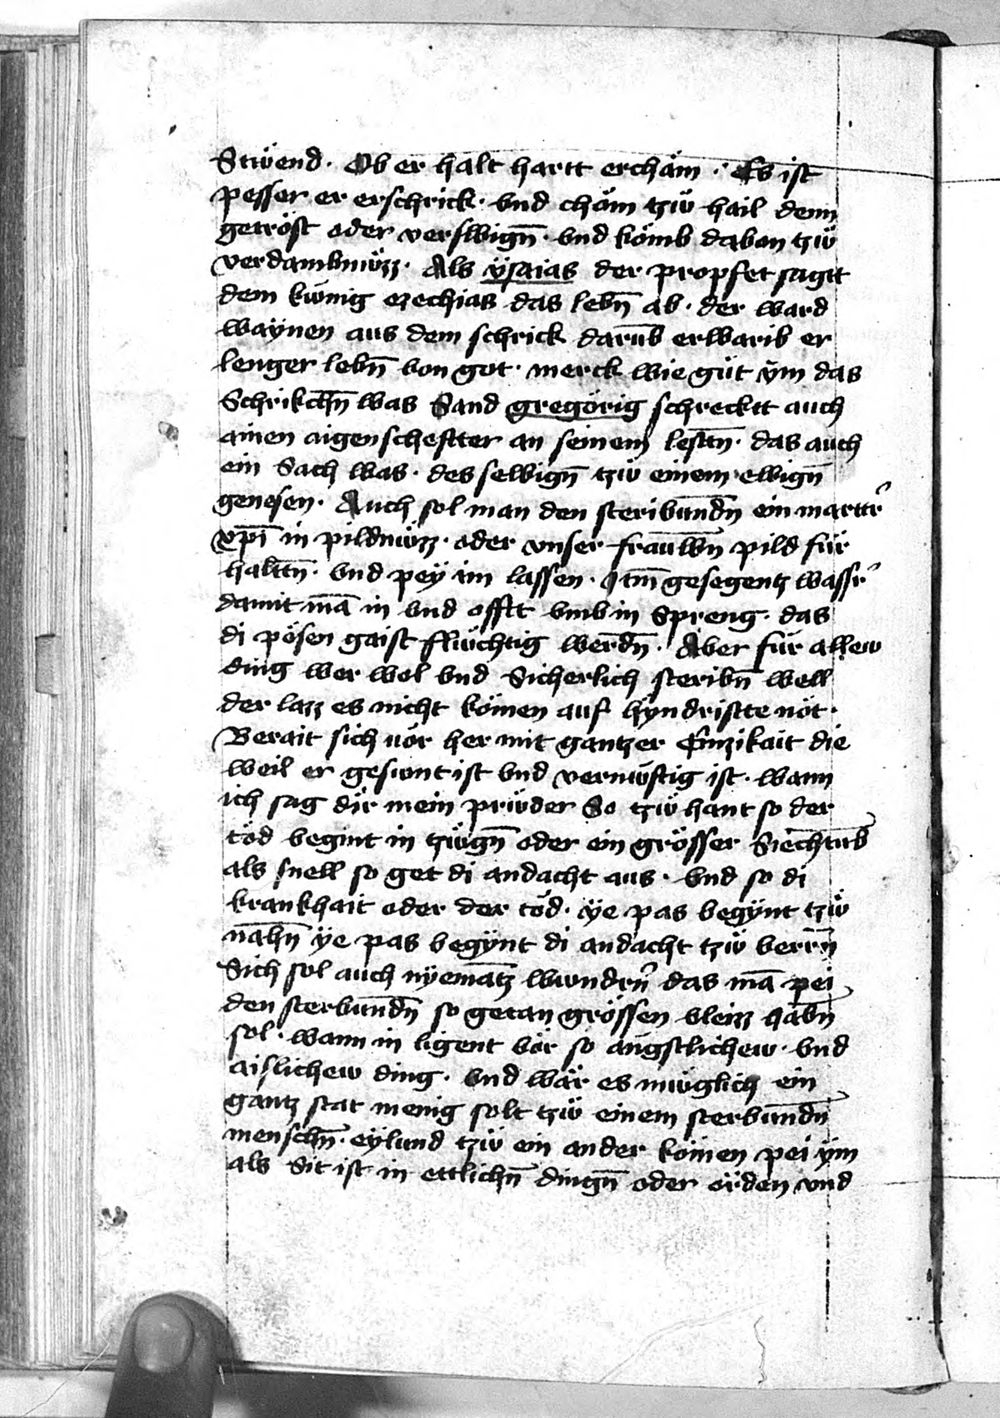 Stŵend · Ob er halt hartt erchäm · Es ist
pesser er erschrick · vnd chäm tzŵ hail denn
getröst oder verswign̄ · vnd kömb dabon tzŵ
verdambnŵzz · Als ÿsaias der propfet sagtt
dem kŵnig ezechias das lebn̄ ab · der ward
waÿnen aus dem schrick darūb erwarib er
lenger lebn̄ bon got · merck wie gŭt ÿm das
Schrikchn̄ was Sand gregörig schrecktt auch
ainen aigen scheftter an seinem lestn̄ · das auch
ein Sach was · des selwign̄ tzŵ einem ewign̄
genesen · Auch sol man den steribundn̄ ein martt̉
xp̄i in pildnŵzz · oder vnser frauwn̄ pild für
haltn̄ · vnd peÿ im lassen · Itm̄ gesegentz wass̉
damit mā in vnd offtt vmb in Spreng · das
di pösen gaist flŵchtig werdn̄ · Aber für allew
ding wer wol vnd Sicherlich steribn̄ well
der lazz es nicht kömen auf hÿndristte nöt ·
Berait sich vör her mit gantzer Einzikait die
weil er gesŵnt ist vnd vernŵftig ist · wann
ich sag dir mein prŵder So tzŵ hant so der
töd begint in tzŵgn̄ oder ein grösser Siechtūb
als snell so get di andacht aus · vnd so di
krankhait oder der töd · ÿe pas begÿnt tzŵ
nahn̄ ÿe pas begÿnt di andacht tzŵ berrn̄
Sich sol auch nÿematz wundrn̄ das mā pei
den sterbundn̄ so getan grössen vleizz habn̄
sol · wann in ligent vör so angstlichew · vnd
aislichew ding · vnd wär es mŵglich ein
gantz stat menig solt tzŵ einem sterbundn̄
menschn̄ · eÿlund tzŵ ein ander kömen pei ÿm
als Sit ist in ettlichn̄ dingn̄ oder örden vnd